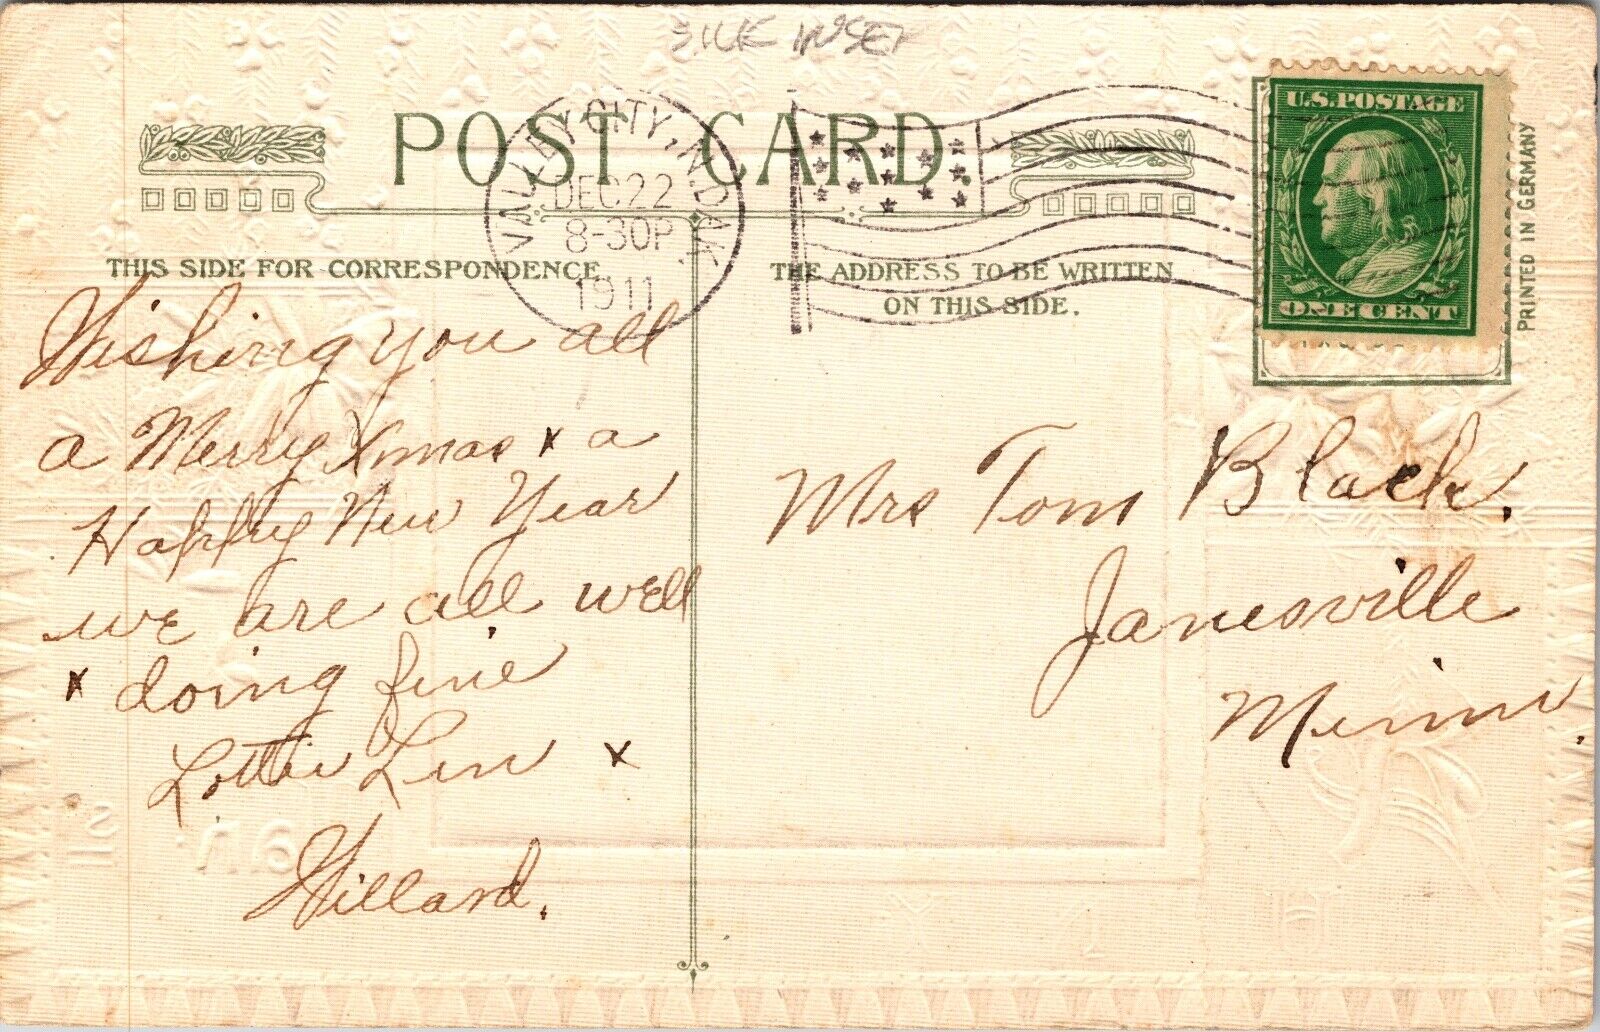 SILK INSET
POST CARD.
VALLEY CITY, N. DAK.
DEC 22
8-30P
1911
U.S. POSTAGE
ONE CENT
PRINTED IN GERMANY
THIS SIDE FOR CORRESPONDENCE
THE ADDRESS TO BE WRITTEN
ON THIS SIDE.
Wishing you all
a Merry Xmas x a
Happy New Year
we are all well
x doing fine.
Lottie Len x
Willard.
Mrs Tom Black.
Janesville
Minn.